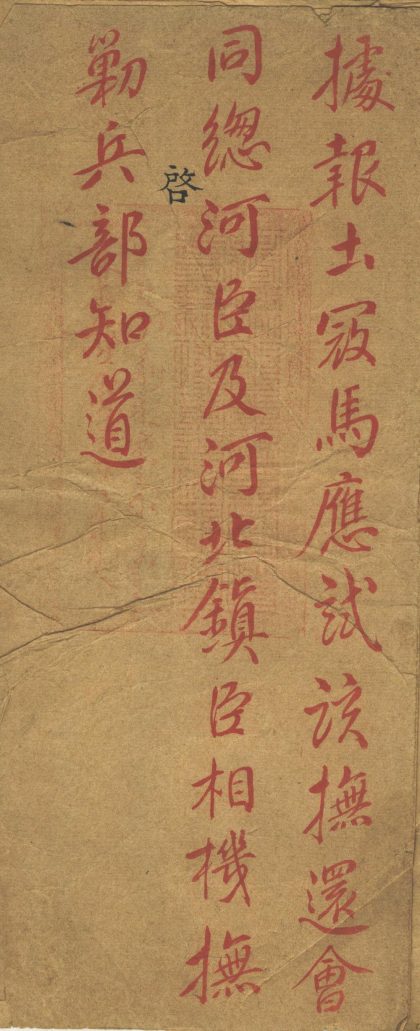 據報土寇馬應試該撫還會
同總河臣及河北鎮臣相機撫
勦兵部知道
啓